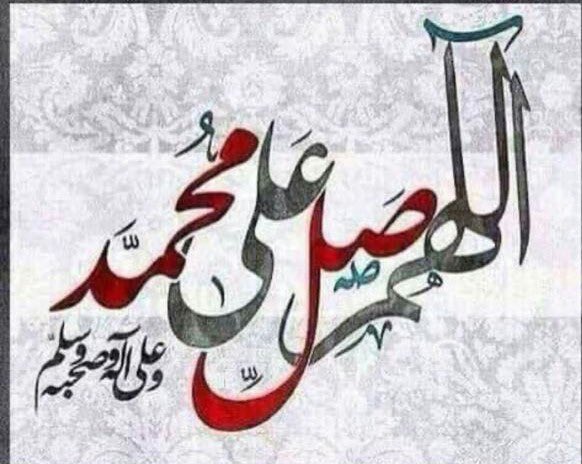 اللهم صل على محمد
وعلى آله وصحبه وسلم